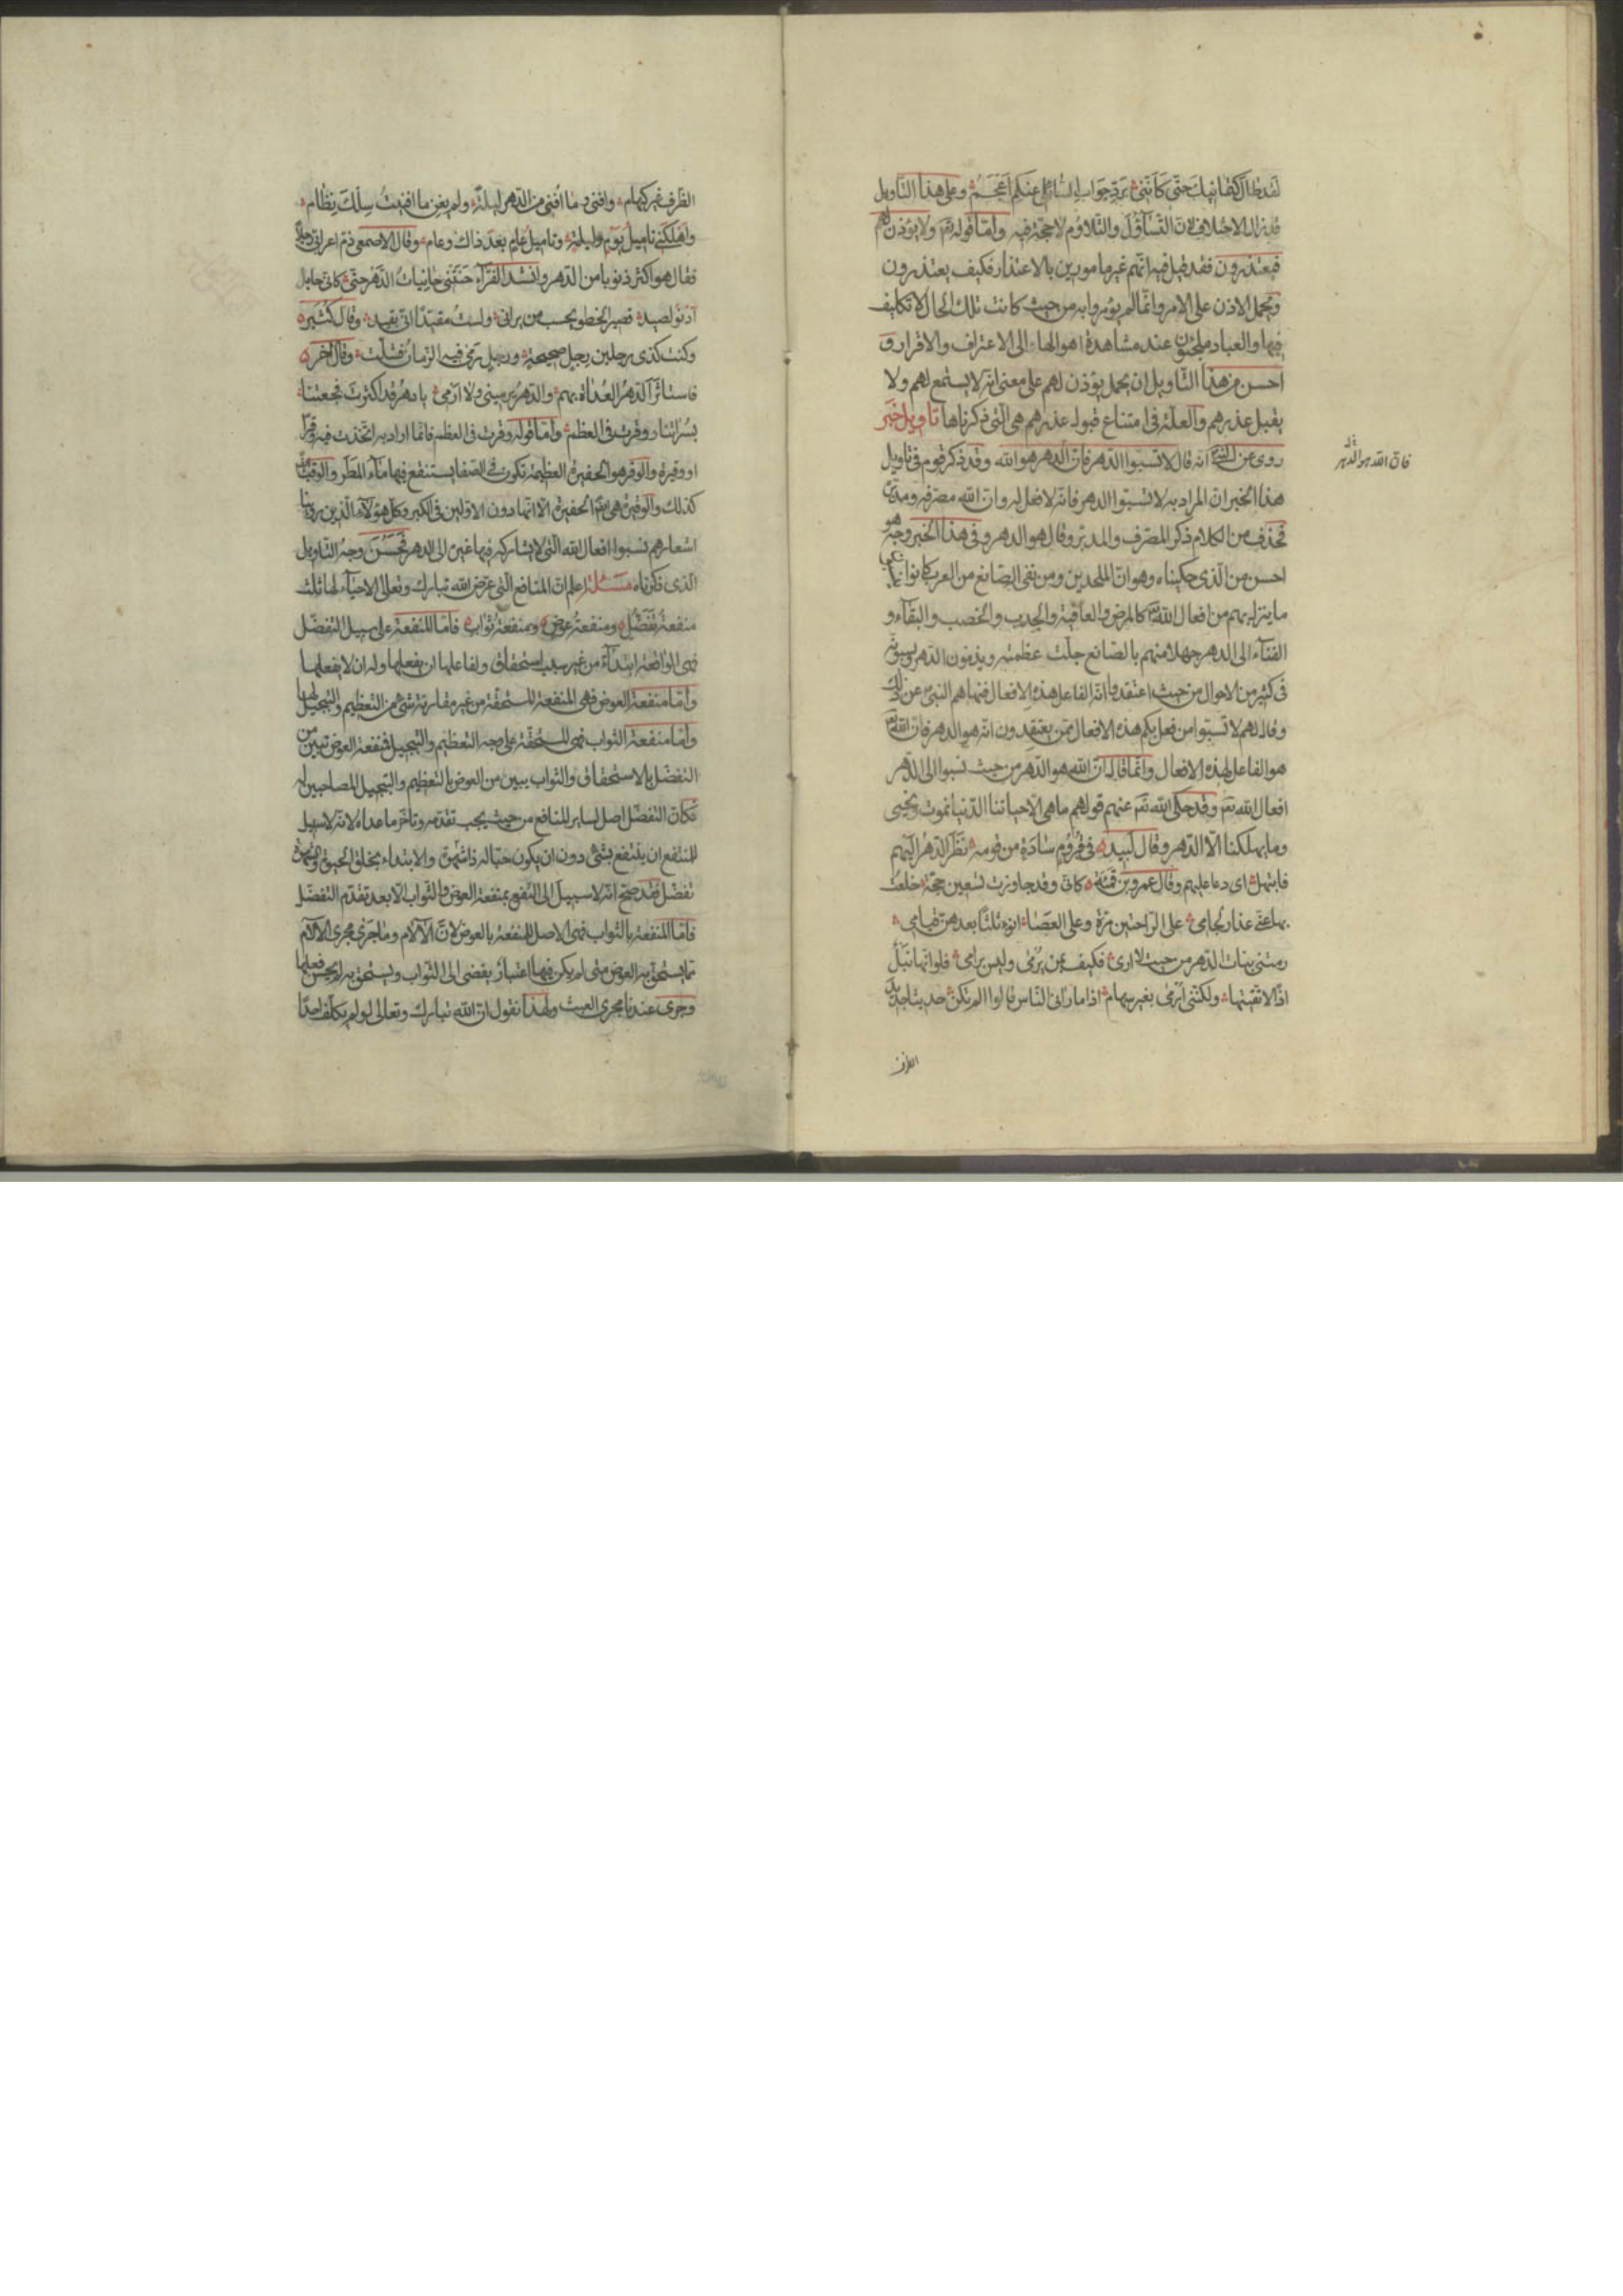 لقد طال كتمانيك حتى كأنني برد جواب السائلي عنك اعجم وعلى هذا التاويل
قد زال الاختلاف لان التساؤل والتلاوم لا حجة فيه واما قوله تعالى ولا يؤذن لهم
فيعتذرون فقد قيل فيه انهم غير مامورين بالاعتذار فكيف يعتذرون
ويحمل الاذن على الامر وانما لم يؤمروا به من حيث كانت تلك الحال لا تكليف
فيها والعباد ملجئون عند مشاهدة اهوالها الى الاعتراف والاقرار و
احسن من هذا التاويل ان يحمل يؤذن لهم على معنى انه لا يستمع لهم ولا
يقبل عذرهم والعلة في امتناع قبول عذرهم هي التي ذكرناها تاويل خبر
روى عن النبي انه قال لا تسبوا الدهر فان الدهر هو الله وقد ذكر قوم في تاويل
فان الله هو الدهر
هذا الخبر ان المراد به لا تسبوا الدهر فانه لا فعل له وان الله مصرفه ومدبره
فحذف من الكلام ذكر المصرف والمدبر وقال هو الدهر وفي هذا الخبر وجه هو
احسن من الذي حكيناه وهو ان الملحدين ومن نفى الصانع من العرب كانوا ينسبون
ما ينزل بهم من افعال الله كالمرض والعافية والجدب والخصب والبقاء و
الفناء الى الدهر جهلا منهم بالصانع جلت عظمته ويذمون الدهر ويسبونه
في كثير من الاحوال من حيث اعتقدوا انه الفاعل لهذه الافعال فنهاهم النبي عن ذلك
وقال لهم لا تسبوا من فعل بكم هذه الافعال ممن يعتقدون انه هو الدهر فان الله
هو الفاعل لهذه الافعال وانما قال ان الله هو الدهر من حيث نسبوا الى الدهر
افعال الله تعالى وقد حكى الله تعالى عنهم قولهم ما هي الا حياتنا الدنيا نموت ونحيى
وما يهلكنا الا الدهر وقال لبيد في قروم سادة من قومه نظر الدهر اليهم
فابتهل اى دعا عليهم وقال عمرو بن قميئة كانى وقد جاوزت تسعين حجة خلعت
بها عني عذار لجامى على الراحتين مرة وعلى العصا انوء ثلثا بعدهن قيامى
رمتنى بنات الدهر من حيث لا ارى فكيف بمن يرمى وليس برامى فلو انها نبل
اذا لاتقيتها ولكننى ارمى بغير سهام اذا ما رانى الناس قالوا الم تكن حديثا جديد
الطرف
الطرف غير كهام وافنى وما افنى من الدهر ليلة ولم يغن ما افنيت سلك نظام
واهلكنى تاميل يوم وليلة وتاميل عام بعد ذاك وعام وقال الاصمعى ذم اعرابى رجلا
فقال هو اكثر ذنوبا من الدهر وانشد الفراء حنتنى حانيات الدهر حتى كانى خاتل
ادنو لصيد قصير الخطو يحسب من يرانى ولست مقيدا انى بقيد وقال كثير
وكنت كذى رجلين رجل صحيحة ورجل رمى فيها الزمان فشلت وقال اخر
فاستاثر الدهر الغداة بهم والدهر يرمينى ولا ارمى يا دهر قد اكثرت فجعتنا
بسراتنا ووقرت في العظم واما قوله وقرت في العظم فانما اراد به اتخذت فيه وقرا
او وقيرة والوقر هو الحفيرة العظيمة تكون في الصفا يستنقع فيها ماء المطر والوقب
كذلك والوقيرة هي الحفيرة الا انها دون الاولين في الكبر وكل هؤلاء الذين روينا
اشعارهم نسبوا افعال الله التي لا يشاركه فيها غيره الى الدهر فحسن وجه التاويل
الذى ذكرناه مسئلة اعلم ان المنافع التي عرض الله تبارك وتعالى الاحياء لها ثلث
منفعة تفضل ومنفعة عوض ومنفعة ثواب فاما المنفعة على سبيل التفضل
فهي الواقعة ابتداء من غير سبب استحقاق ولفاعلها ان يفعلها وله ان لا يفعلها
واما منفعة العوض فهي المنفعة المستحقة من غير مقارنة شئ من التعظيم والتبجيل لها
واما منفعة الثواب فهي المستحقة على وجه التعظيم والتبجيل فمنفعة العوض تبين من
التفضل بالاستحقاق والثواب يبين من العوض بالتعظيم والتبجيل المصاحبين له
فكان التفضل اصل لساير المنافع من حيث يجب تقدمه وتاخر ما عداه لانه لا سبيل
للمنتفع ان ينتفع بشئ دون ان يكون حيا له ذا شهوة والابتداء بخلق الحيوة والشهوة
تفضل فقد صح انه لا سبيل الى النفع بمنفعة العوض والثواب الا بعد تقدم التفضل
فاما المنفعة بالثواب فهي الاصل للمنفعة بالعوض لان الالام وما جرى مجرى الالام
مما يستحق به العوض متى لم يكن فيها اعتبار يفضى الى الثواب ويستحق به لم يحسن فعلها
وجرى عندنا مجرى العبث ولهذا نقول ان الله تبارك وتعالى لو لم يكلف احدا